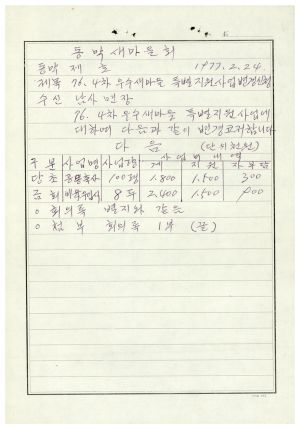 동막새마을회
동막 제 호 1977. 2. 24.
제목 76. 4차 우수새마을 특별지원사업변경신청
수신 남사면장
76. 4차 우수새마을 특별지원사업에
대하여 다음과 같이 변경코저합니다
다음 (단위천원)
구분 사업명 사업량 사업비내역
계 지원 자부담
당초 100평 1,800 1,500 300
8두 2,400 1,500 900
○ 회의록 별지와 같음
○ 첨부 회의록 1부 (끝)